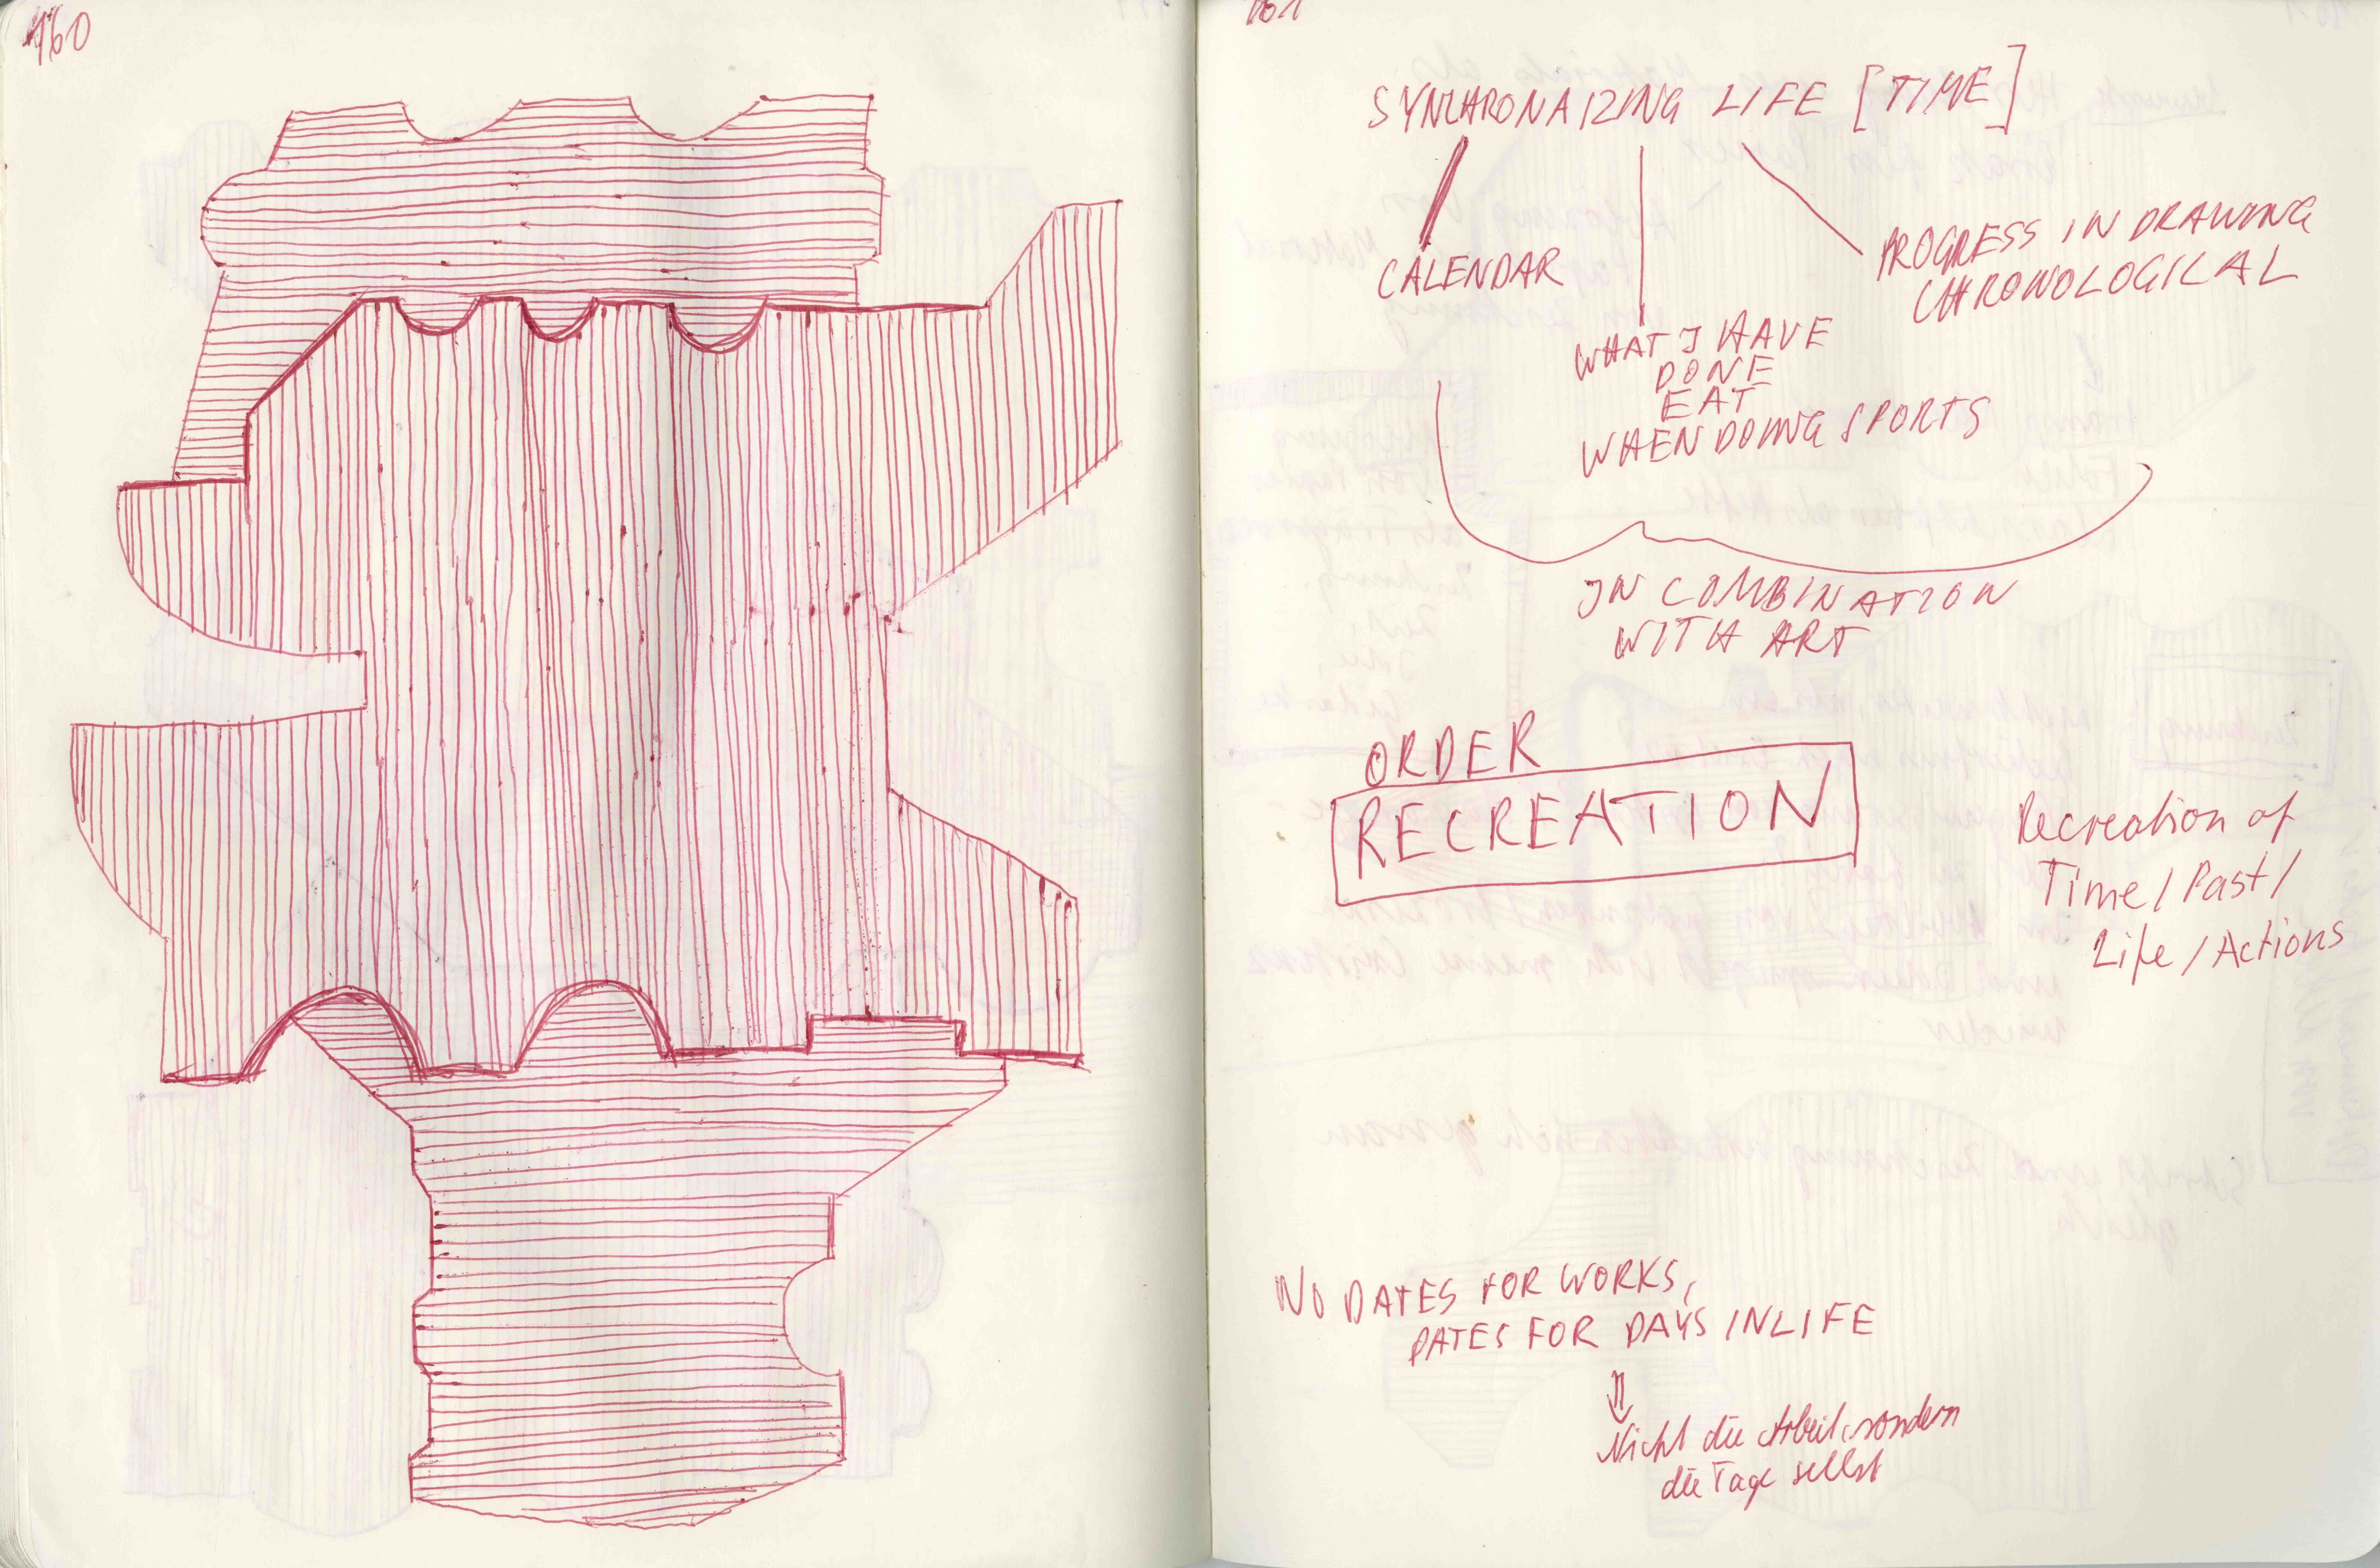 160
161
SYNCHRONAIZING LIFE [TIME]
CALENDAR
PROGRESS IN DRAWING
CHRONOLOGICAL
WHAT I HAVE
DONE
EAT
WHEN DOING SPORTS
IN COMBINATION
WITH ART
ORDER
RECREATION
Recreation of
Time / Past /
Life / Actions
NO DATES FOR WORKS,
DATES FOR DAYS IN LIFE
Nicht die Arbeit, sondern
die Tage selbst